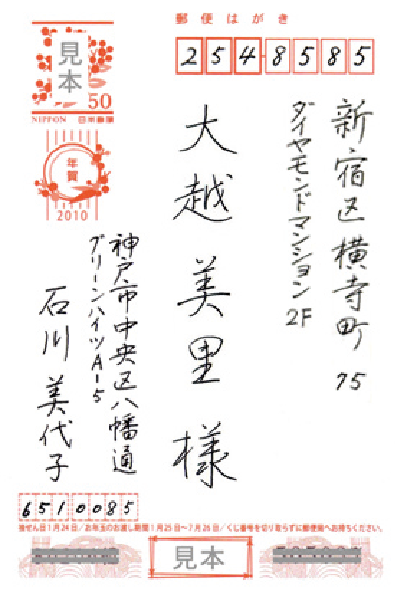 郵便はがき
254-8585
新宿区横寺町 75
ダイヤモンドマンション 2F
大越美里様
見本
50
NIPPON 日本郵便
年賀
2010
神戸市中央区八幡通
グリーンハイツA-5
石川美代子
6510085
抽せん日1月24日/お年玉のお渡し期間1月25日~7月26日/くじ番号を切り取らずに郵便局へお持ちください。
見本